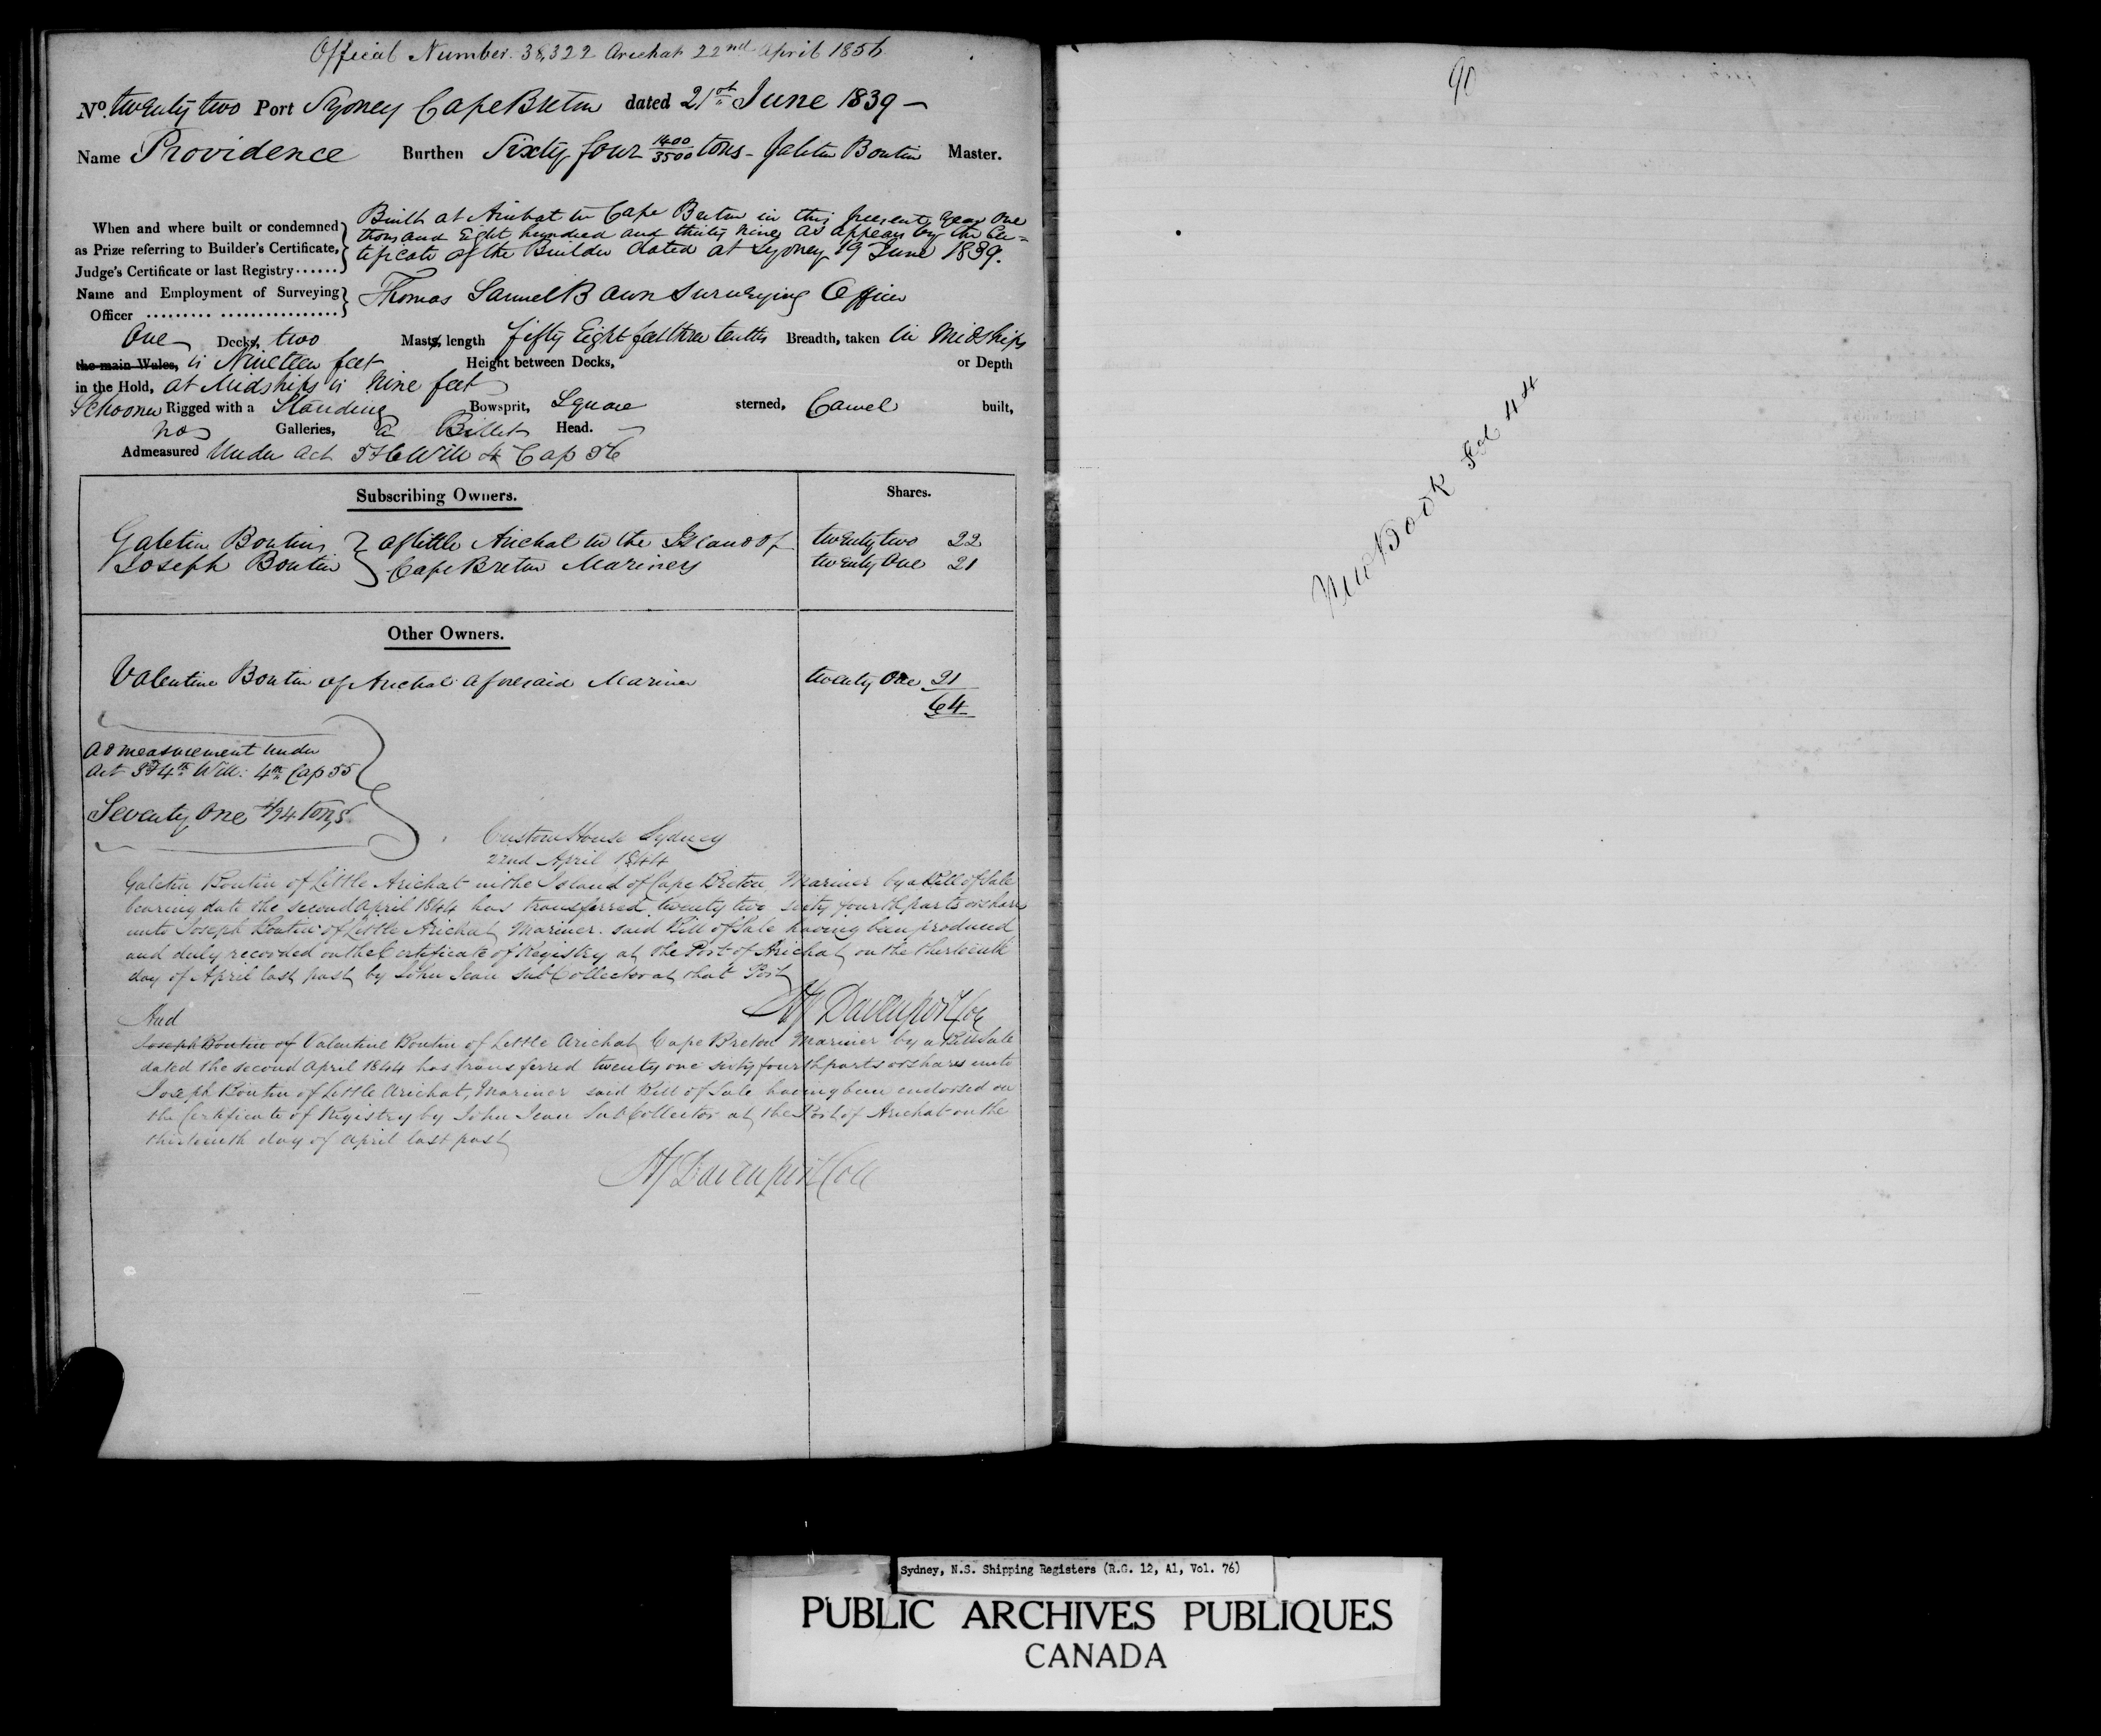 Official Number. 38,322 Arichat 22nd April 1856
No. twenty two Port Sydney Cape Breton dated 21st June 1839 —
Name Providence Burthen Sixty four 1400/3500 tons - Galetin Boutin Master.
When and where built or condemned as Prize referring to Builder's Certificate, Judge's Certificate or last Registry......
Built at Arichat in Cape Breton in this present year One
thousand Eight hundred and thirty nine as appears by the Cer=
tificate of the Builder dated at Sydney 19 June 1839.
Name and Employment of Surveying Officer ......... ................
Thomas Samuel Bown Surveying Officer
One Decks, two Masts, length fifty Eight feet three tenths Breadth, taken in Midships
the main Wales, is Nineteen feet Height between Decks, or Depth
in the Hold, at Midships is Nine feet
Schooner Rigged with a Standing Bowsprit, Square sterned, Carvel built,
no Galleries, a Billet Head.
Admeasured Under Act 5 & 6 Will 4 Cap 56
Subscribing Owners. Shares.
Galetin Boutin } of little Arichat in the Island of twenty two 22
Joseph Boutin } Cape Breton Mariners twenty One 21
Other Owners.
Valentine Boutin of Arichat aforesaid Mariner twenty One 21
64
Admeasurement under
Act 3d & 4th Will: 4th Cap 55
Seventy One /94 tons
Custom House Sydney
22nd April 1844
Galetin Boutin of Little Arichat in the Island of Cape Breton, Mariner by a Bill of Sale
bearing date the second April 1844 has transferred twenty two sixty fourth parts or shares
unto Joseph Boutin of Little Arichat, Mariner. said Bill of Sale having been produced
and duly recorded on the Certificate of Registry at the Port of Arichat on the thirteenth
day of April last past by John Jean Sub Collector at that Port
Davenport Col
And
Joseph Boutin of Valentine Boutin of Little Arichat, Cape Breton Mariner by a Bill Sale
dated the second April 1844 has transferred twenty one sixty fourth parts or shares unto
Joseph Boutin of Little Arichat, Mariner said Bill of Sale having been endorsed on
the Certificate of Registry by John Jean Sub Collector at the Port of Arichat on the
thirteenth day of April last past
Davenport Col
90
New Book Fol 44
Sydney, N.S. Shipping Registers (R.G. 12, A1, Vol. 76)
PUBLIC ARCHIVES PUBLIQUES
CANADA